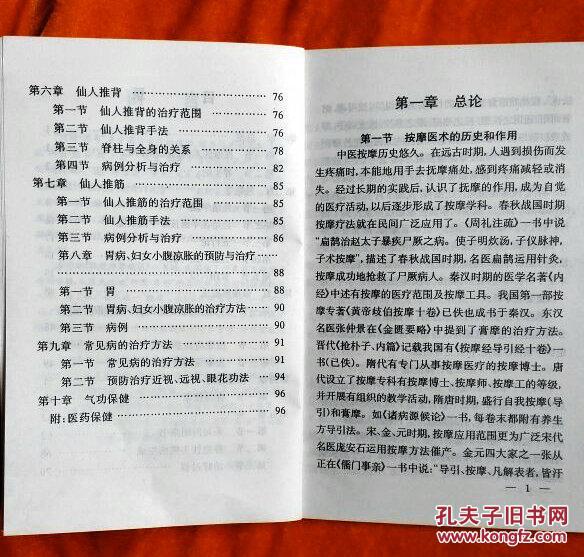 第六章 仙人推背 ………………………… 76
第一节 仙人推背的治疗范围 ………… 76
第二节 仙人推背手法 ………………… 76
第三节 脊柱与全身的关系 …………… 78
第四节 病例分析与治疗 ……………… 82
第七章 仙人推筋 ………………………… 85
第一节 仙人推筋的治疗范围 ………… 85
第二节 仙人推筋手法 ………………… 85
第三节 病例分析与治疗 ……………… 86
第八章 胃病、妇女小腹凉胀的预防与治疗 ……
………………………………………… 88
第一节 胃 ……………………………… 88
第二节 胃病、妇女小腹凉胀的治疗方法 … 90
第三节 病例 …………………………… 90
第九章 常见病的治疗方法 ……………… 91
第一节 常见病的治疗方法 …………… 91
第二节 预防治疗近视、远视、眼花功法 … 94
第十章 气功保健 ………………………… 96
附:医药保健 …………………………… 96
第一章 总论
第一节 按摩医术的历史和作用
中医按摩历史悠久。在远古时期,人遇到损伤而发
生疼痛时,本能地用手去抚摩痛处,感到疼痛减轻或消
失。经过长期的实践后,认识了抚摩的作用,成为自觉
的医疗活动,以后逐步形成了按摩学科。春秋战国时期
按摩疗法就在民间广泛应用了。《周礼注疏》一书中说
"扁鹊治赵太子暴疾尸厥之病。使子明炊汤,子仪脉神,
子术按摩",描述了春秋战国时期,名医扁鹊运用针灸、
按摩成功地抢救了尸厥病人。秦汉时期的医学名著《内
经》中述有按摩的医疗范围及按摩工具。我国第一部按
摩专著《黄帝歧伯按摩十卷》已佚也成书于秦汉。东汉
名医张仲景在《金匮要略》中提到了膏摩的治疗方法。
晋代《抢朴子、内篇》记载我国有《按摩经导引经十卷》一
书(已佚)。隋代有专门从事按摩医疗的按摩博士。唐
代设立了按摩专科有按摩博士、按摩师、按摩工的等级,
并开展有组织的教学活动,隋唐时期,盛行自我按摩(导
引)和膏摩。如《诸病源候论》一书,每卷末都附有养生
方导引法。宋、金、元时期,按摩应用范围更为广泛宋代
名医庞安石运用按摩方法催产。金元四大家之一张从
正在《儒门事亲》一书中说:"导引、按摩、凡解表者,皆汗
— 1 —
孔夫子旧书网
www.kongfz.com